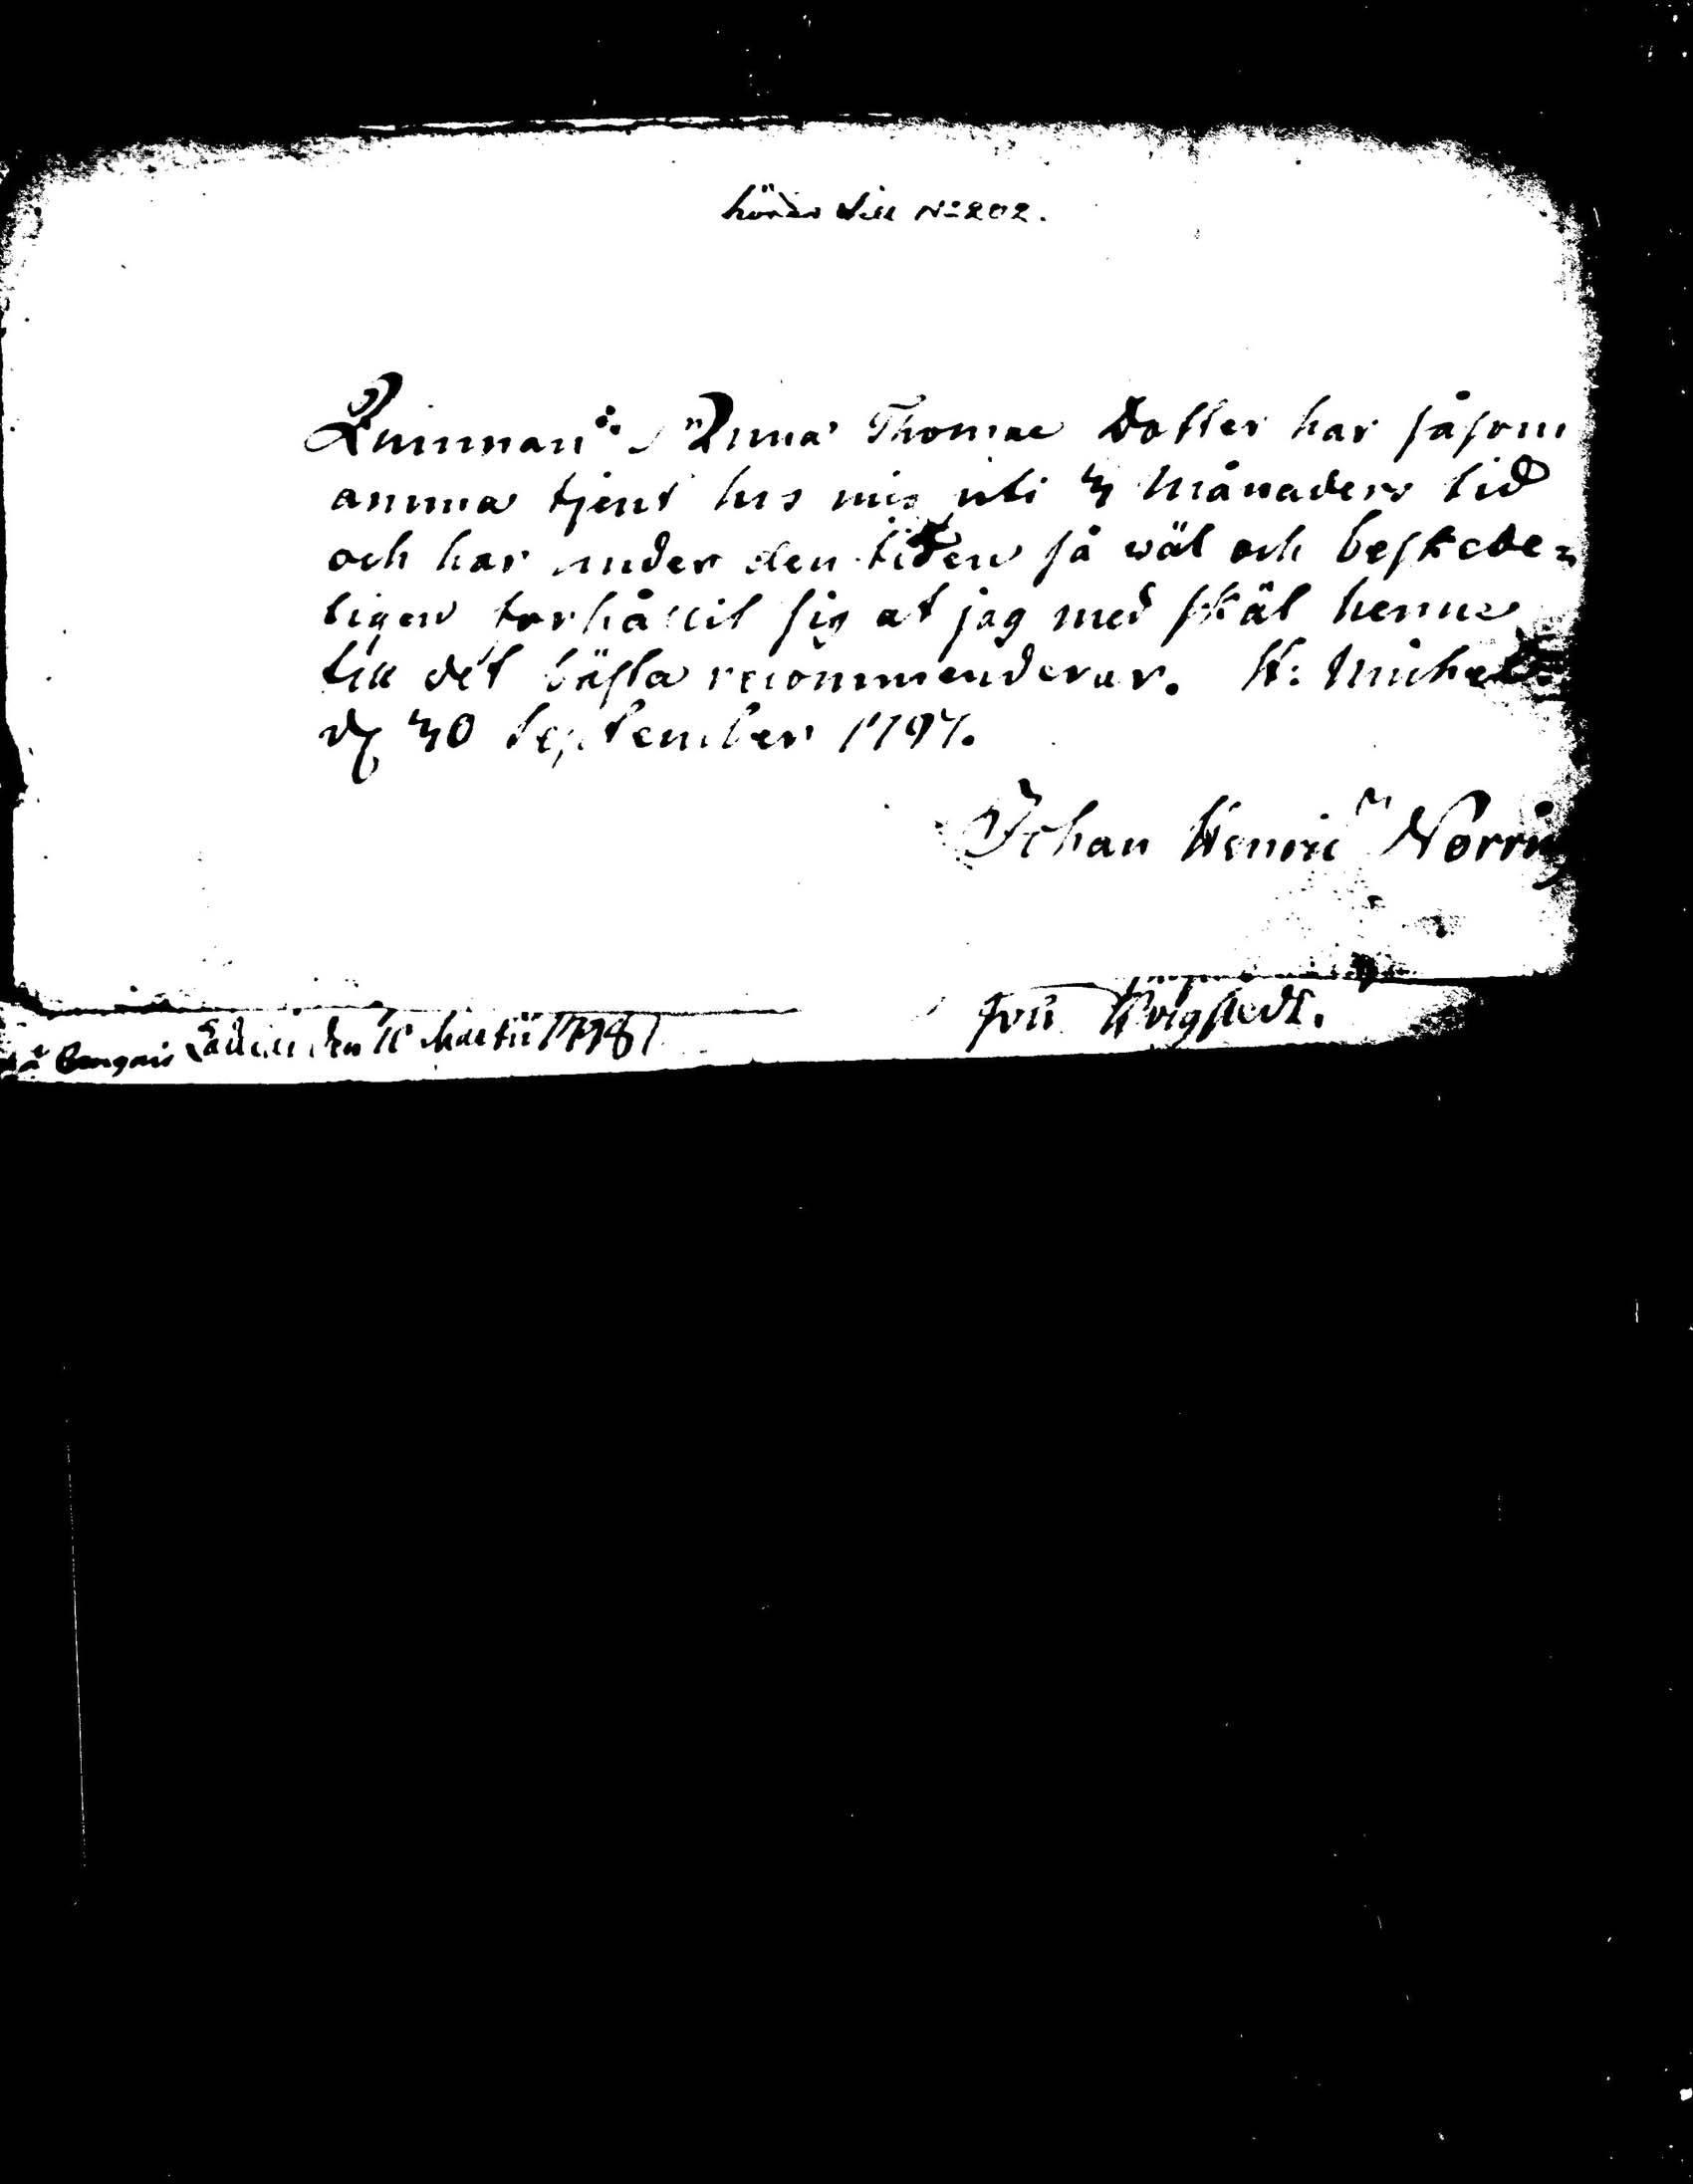 hörer till No 202.
Qwinnan Anna Thomae Dotter har såsom
amma tjent hos mig uti 3 Månaders tid
och har under den tiden så wäl och beskede=
ligen förhållit sig at jag med skäl henne
till det bästa recommenderar. St: Michel
d 30 September 1797.
Johan Henric Norrin
den 10 Martii 1798